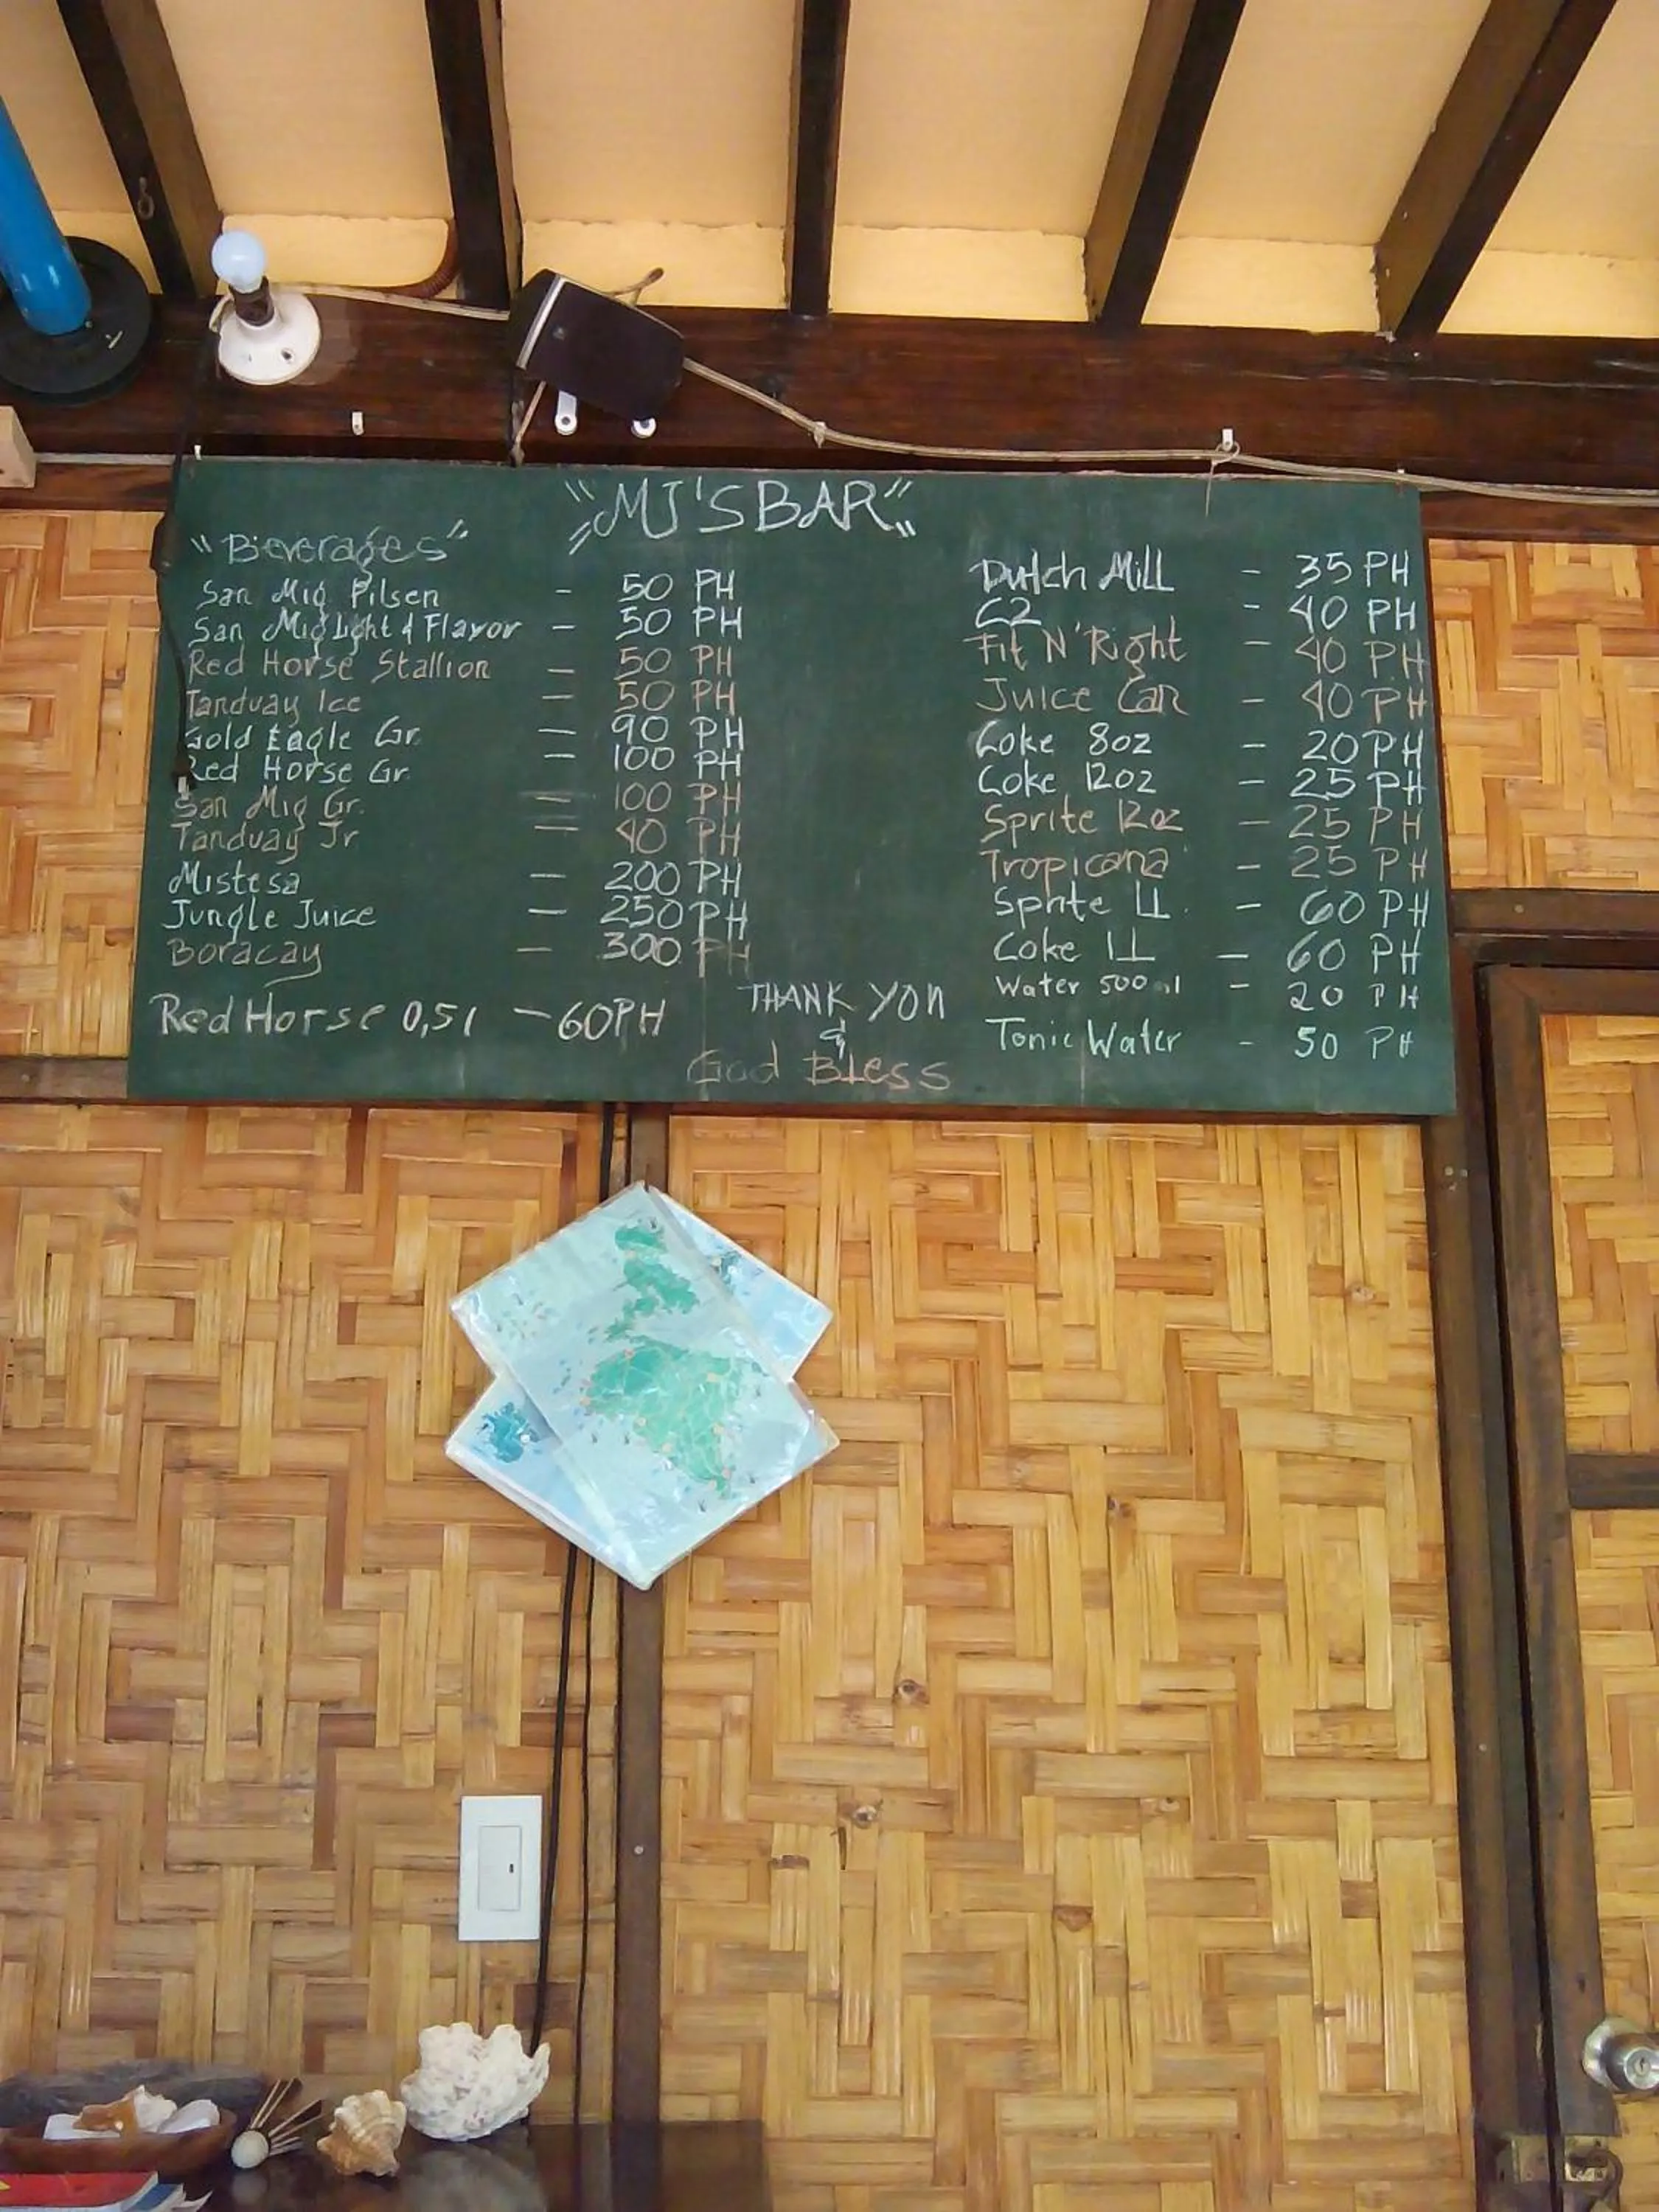 "MJ'S BAR"
"Beverages"
San Mig Pilsen - 50 PH
San Mig Light & Flavor - 50 PH
Red Horse Stallion - 50 PH
Tanduay Ice - 50 PH
Gold Eagle Gr. - 90 PH
Red Horse Gr. - 100 PH
San Mig Gr. - 100 PH
Tanduay Jr - 40 PH
Mistesa - 200 PH
Jungle Juice - 250 PH
Boracay - 300 PH
Red Horse 0,5l - 60PH
Dutch Mill - 35 PH
C2 - 40 PH
Fit N' Right - 40 PH
Juice Can - 40 PH
Coke 8oz - 20 PH
Coke 12oz - 25 PH
Sprite 12oz - 25 PH
Tropicana - 25 PH
Sprite 1L. - 60 PH
Coke 1L - 60 PH
Water 500 ml - 20 PH
Tonic Water - 50 PH
THANK YOU
&
God Bless